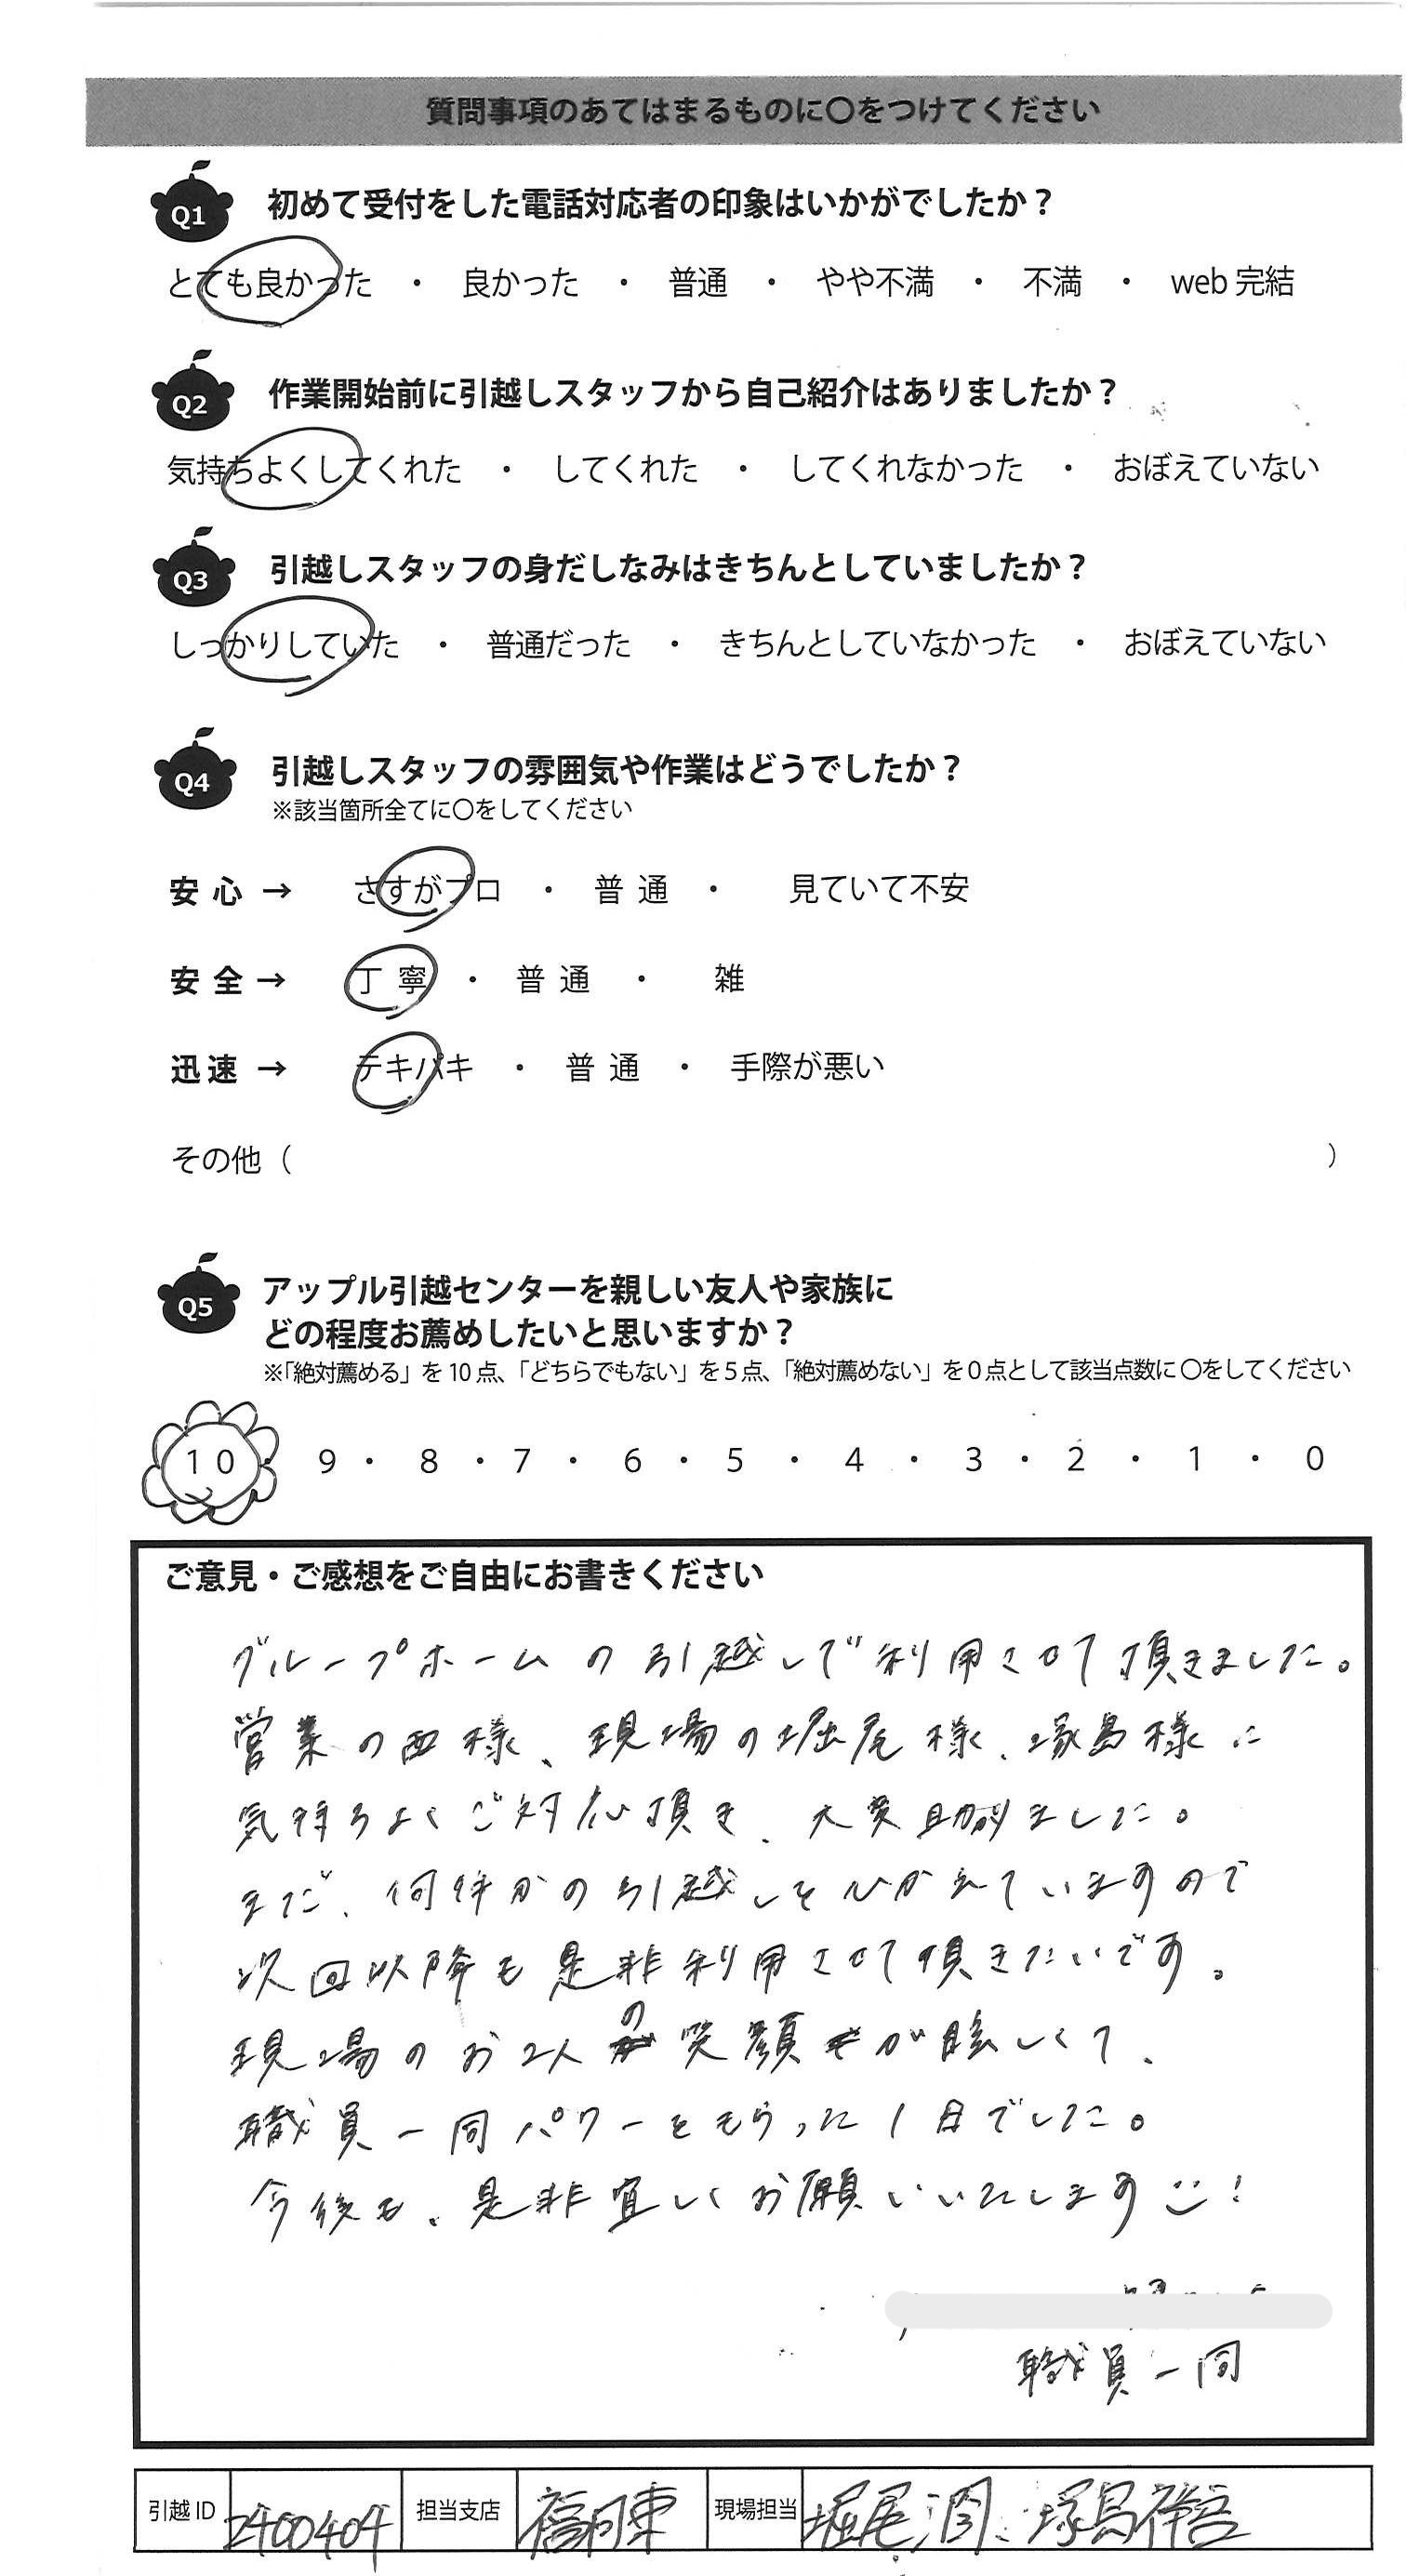 質問事項のあてはまるものに〇をつけてください
Q1 初めて受付をした電話対応者の印象はいかがでしたか？
とても良かった ・ 良かった ・ 普通 ・ やや不満 ・ 不満 ・ web 完結
Q2 作業開始前に引越しスタッフから自己紹介はありましたか？
気持ちよくしてくれた ・ してくれた ・ してくれなかった ・ おぼえていない
Q3 引越しスタッフの身だしなみはきちんとしていましたか？
しっかりしていた ・ 普通だった ・ きちんとしていなかった ・ おぼえていない
Q4 引越しスタッフの雰囲気や作業はどうでしたか？
※該当箇所全てに〇をしてください
安心 → さすがプロ ・ 普通 ・ 見ていて不安
安全 → 丁寧 ・ 普通 ・ 雑
迅速 → テキパキ ・ 普通 ・ 手際が悪い
その他（ ）
Q5 アップル引越センターを親しい友人や家族に
どの程度お薦めしたいと思いますか？
※「絶対薦める」を10点、「どちらでもない」を5点、「絶対薦めない」を0点として該当点数に〇をしてください
10 ・ 9 ・ 8 ・ 7 ・ 6 ・ 5 ・ 4 ・ 3 ・ 2 ・ 1 ・ 0
ご意見・ご感想をご自由にお書きください
グループホームの引越しで利用させて頂きました。
営業の西様、現場の堀尾様、塚島様に
気持ちよくご対応頂き、大変助かりました。
まだ、何件かの引越しをひかえていますので
次回以降も是非利用させて頂きたいです。
現場のお2人の笑顔が眩しくて、
職員一同パワーをもらった1日でした。
今後も、是非宜しくお願いいたします!
職員一同
引越ID 2400404 担当支店 福岡東 現場担当 堀尾 潤、塚島祥吾